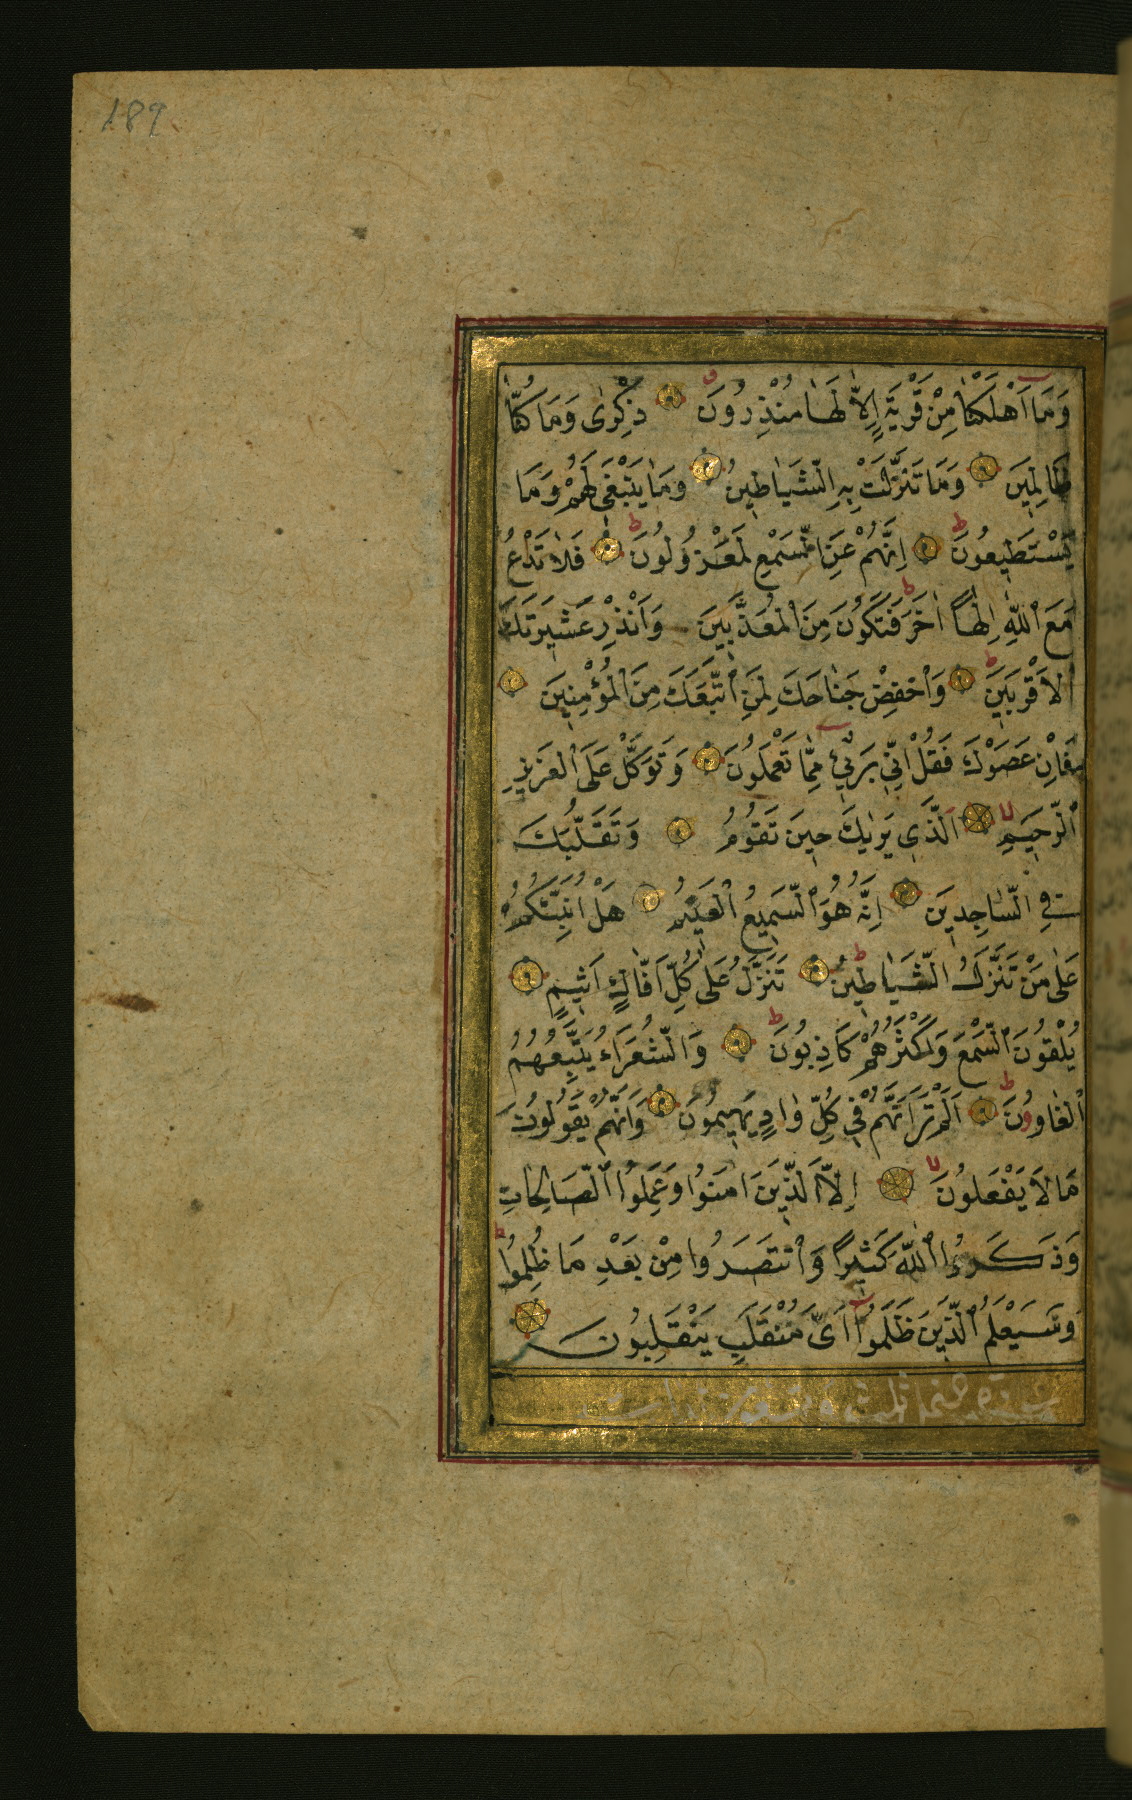 189
وَمَا اَهْلَكْنَا مِنْ قَرْيَةٍ اِلَّا لَهَا مُنْذِرُونَ ذِكْرٰى وَمَا كُنَّا
ظَالِمِينَ وَمَا تَنَزَّلَتْ بِهِ الشَّيَاطِينُ وَمَا يَنْبَغٖى لَهُمْ وَمَا
يَسْتَطِيعُونَ اِنَّهُمْ عَنِ السَّمْعِ لَمَعْزُولُونَ فَلَا تَدْعُ
مَعَ اللّٰهِ اِلٰهًا اٰخَرَ فَتَكُونَ مِنَ الْمُعَذَّبِينَ وَاَنْذِرْ عَشِيرَتَكَ
الْاَقْرَبِينَ وَاخْفِضْ جَنَاحَكَ لِمَنِ اتَّبَعَكَ مِنَ الْمُؤْمِنِينَ
فَاِنْ عَصَوْكَ فَقُلْ اِنِّى بَرِىءٌ مِمَّا تَعْمَلُونَ وَتَوَكَّلْ عَلَى الْعَزِيزِ
الرَّحِيمِ الَّذِى يَرٰيكَ حِينَ تَقُومُ وَتَقَلُّبَكَ
فِى السَّاجِدِينَ اِنَّهُ هُوَ السَّمِيعُ الْعَلِيمُ هَلْ اُنَبِّئُكُمْ
عَلٰى مَنْ تَنَزَّلُ الشَّيَاطِينُ تَنَزَّلُ عَلٰى كُلِّ اَفَّاكٍ اَثِيمٍ
يُلْقُونَ السَّمْعَ وَاَكْثَرُهُمْ كَاذِبُونَ وَالشُّعَرَاءُ يَتَّبِعُهُمُ
الْغَاوُونَ اَلَمْ تَرَ اَنَّهُمْ فِى كُلِّ وَادٍ يَهِيمُونَ وَاَنَّهُمْ يَقُولُونَ
مَا لَا يَفْعَلُونَ اِلَّا الَّذِينَ اٰمَنُوا وَعَمِلُوا الصَّالِحَاتِ
وَذَكَرُوا اللّٰهَ كَثِيرًا وَانْتَصَرُوا مِنْ بَعْدِ مَا ظُلِمُوا
وَسَيَعْلَمُ الَّذِينَ ظَلَمُوا اَىَّ مُنْقَلَبٍ يَنْقَلِبُونَ